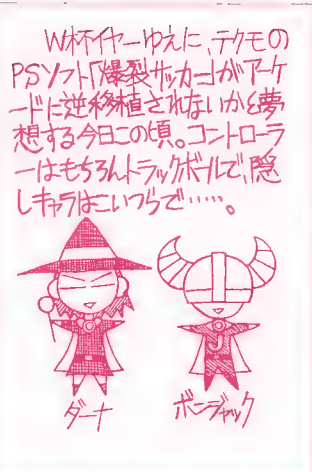 W杯イヤーゆえに、テクモの
PSソフト「爆裂サッカー」がアーケ
ードに逆移植されないかと夢
想する今日この頃。コントローラ
ーはもちろんトラックボールで、隠
しキャラはこいつらで……。
ダーナ
ボンジャック
J